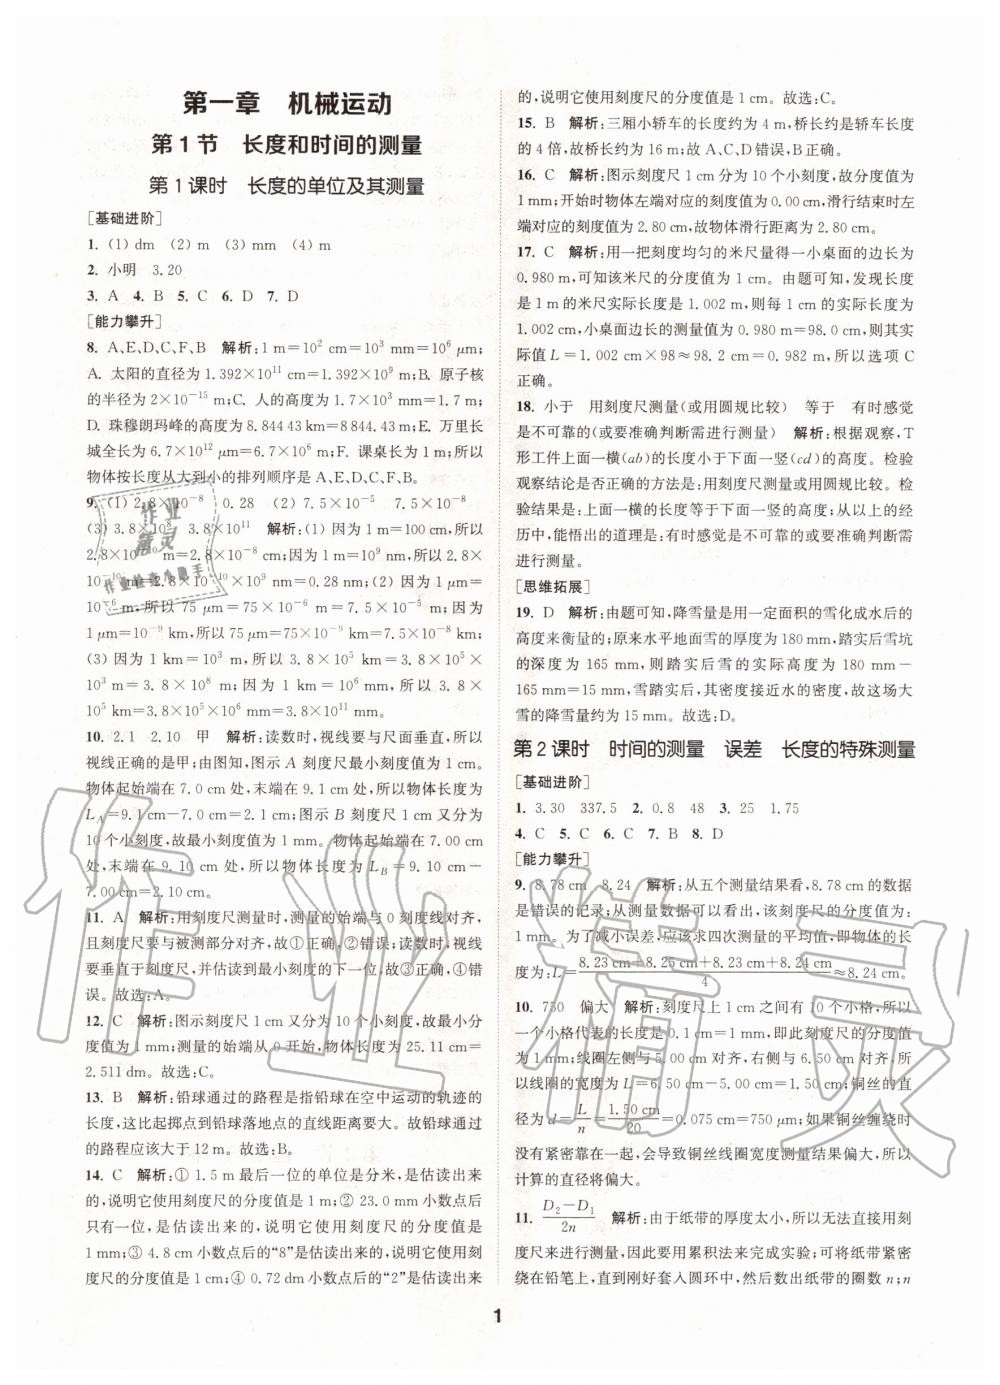 第一章　机械运动
第1节　长度和时间的测量
第1课时　长度的单位及其测量
[基础进阶]
1. (1) dm　(2) m　(3) mm　(4) m
2. 小明　3.20
3. A　4. B　5. C　6. D　7. D
[能力攀升]
8. A、E、D、C、F、B　解析:1 m=10² cm=10³ mm=10⁶ μm;
A. 太阳的直径为 1.392×10¹¹ cm=1.392×10⁹ m;B. 原子核
的半径为 2×10⁻¹⁵ m;C. 人的高度为 1.7×10³ mm=1.7 m;
D. 珠穆朗玛峰的高度为 8.844 43 km=8 844.43 m;E. 万里长
城全长为 6.7×10¹² μm=6.7×10⁶ m;F. 课桌长为 1 m;所以
物体按长度从大到小的排列顺序是 A、E、D、C、F、B。
9. (1) 2.8×10⁻⁸　0.28　(2) 7.5×10⁻⁵　7.5×10⁻⁸
(3) 3.8×10⁸　3.8×10¹¹　解析:(1) 因为 1 m=100 cm,所以
2.8×10⁻¹⁰ m=2.8×10⁻⁸ cm;因为 1 nm=10⁻⁹ m,所以 2.8×
10⁻¹⁰ m=2.8×10⁻¹⁰×10⁹ nm=0.28 nm;(2) 因为 1 μm=
10⁻⁶ m,所以 75 μm=75×10⁻⁶ m=7.5×10⁻⁵ m;因为
1 μm=10⁻⁹ km,所以 75 μm=75×10⁻⁹ km=7.5×10⁻⁸ km;
(3) 因为 1 km=10³ m,所以 3.8×10⁵ km=3.8×10⁵×
10³ m=3.8×10⁸ m;因为 1 km=10⁶ mm,所以 3.8×
10⁵ km=3.8×10⁵×10⁶ mm=3.8×10¹¹ mm。
10. 2.1　2.10　甲　解析:读数时,视线要与尺面垂直,所以
视线正确的是甲;由图知,图示 A 刻度尺最小刻度值为 1 cm。
物体起始端在 7.0 cm 处,末端在 9.1 cm 处,所以物体长度为
L_A=9.1 cm-7.0 cm=2.1 cm;图示 B 刻度尺 1 cm 又分为
10 个小刻度,故最小刻度值为 1 mm。物体起始端在 7.00 cm
处,末端在 9.10 cm 处,所以物体长度为 L_B=9.10 cm-
7.00 cm=2.10 cm。
11. A　解析:用刻度尺测量时,测量的始端与 0 刻度线对齐,
且刻度尺要与被测部分对齐,故①正确,②错误;读数时,视线
要垂直于刻度尺,并估读到最小刻度值的下一位,故③正确,④错
误。故选:A。
12. C　解析:图示刻度尺 1 cm 又分为 10 个小刻度,故最小刻
度值为 1 mm;测量的始端从 0 开始,物体长度为 25.11 cm=
2.511 dm。故选:C。
13. B　解析:铅球通过的路程是指铅球在空中运动的轨迹的
长度,这比起掷点到铅球落地点的直线距离要大。故铅球通过
的路程应该大于 12 m。故选:B。
14. C　解析:① 1.5 m 最后一位的单位是分米,是估读出来
的,说明它使用刻度尺的分度值是 1 m;② 23.0 mm 小数点后
只有一位,是估读出来的,说明它使用刻度尺的分度值是
1 mm;③ 4.8 cm 小数点后的“8”是估读出来的,说明它使用刻
度尺的分度值是 1 cm;④ 0.72 dm 小数点后的“2”是估读出来
的,说明它使用刻度尺的分度值是 1 cm。故选:C。
15. B　解析:三厢小轿车的长度约为 4 m,桥长约为轿车长度
的 4 倍,故桥长约为 16 m;故 A、C、D 错误,B 正确。
16. C　解析:图示刻度尺 1 cm 分为 10 个小刻度,故分度值为
1 mm;开始时物体左端对应的刻度值为 0.00 cm,滑行结束时左
端对应的刻度值为 2.80 cm,故物体滑行距离为 2.80 cm。
17. C　解析:用一把刻度均匀的米尺量得一小桌面的边长为
0.980 m,可知该米尺的分度值为 1 cm。由题可知,发现长度
是 1 m 的米尺实际长度是 1.002 m,则每 1 cm 的实际长度为
1.002 cm,小桌面边长的测量值为 0.980 m=98.0 cm,则其实
际值 L=1.002 cm×98≈98.2 cm=0.982 m,所以选项 C
正确。
18. 小于　用刻度尺测量(或用圆规比较)　等于　有时感觉
是不可靠的(或要准确判断需进行测量)　解析:根据观察,T
形工件上面一横(ab)的长度小于下面一竖(cd)的高度。检验
观察结论是否正确的方法是:用刻度尺测量或用圆规比较。检
验结果是:上面一横的长度等于下面一竖的高度;从以上的经
历中,能悟出的道理是:有时感觉是不可靠的或要准确判断需
进行测量。
[思维拓展]
19. D　解析:由题可知,降雪量是用一定面积的雪化成水后的
高度来衡量的;原来水平地面雪的厚度为 180 mm,踏实后雪坑
的深度为 165 mm,则踏实后雪的实际高度为 180 mm-
165 mm=15 mm,雪踏实后,其密度接近水的密度,故这场大
雪的降雪量约为 15 mm。故选:D。
第2课时　时间的测量　误差　长度的特殊测量
[基础进阶]
1. 3.30　337.5　2. 0.8　48　3. 25　1.75
4. C　5. C　6. C　7. B　8. D
[能力攀升]
9. 8.78 cm　8.24　解析:从五个测量结果看,8.78 cm 的数据
是错误的记录;从测量数据可以看出,该刻度尺的分度值为:
1 mm。为了减小误差,应该求四次测量的平均值,即物体的长
度为:L=(8.23 cm+8.25 cm+8.23 cm+8.24 cm)/4≈8.24 cm。
10. 750　偏大　解析:刻度尺上 1 cm 之间有 10 个小格,所以
一个小格代表的长度是 0.1 cm=1 mm,即此刻度尺的分度值
为 1 mm;线圈左侧与 5.00 cm 对齐,右侧与 6.50 cm 对齐,所
以线圈的宽度为 L=6.50 cm-5.00 cm=1.50 cm;铜丝的直
径为 d=L/n=1.50 cm/20=0.075 cm=750 μm;如果铜丝缠绕时
没有紧密靠在一起,会导致铜丝线圈宽度测量结果偏大,所以
计算的直径将偏大。
11. (D₂-D₁)/2n　解析:由于纸带的厚度太小,所以无法直接用刻
度尺来进行测量,因此要用累积法来完成实验;可将纸带紧密
绕在铅笔上,直到刚好套入圆环中,然后数出纸带的圈数 n;n
1
作业精灵
作业精灵
作业检查小助手